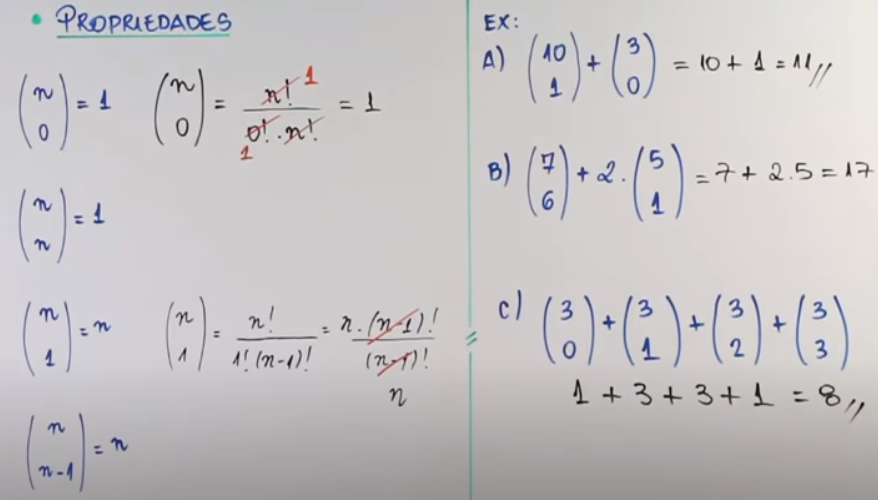 • PROPRIEDADES
(n 0) = 1    (n 0) = n! / (0! · n!) = 1
1
1
(n n) = 1
(n 1) = n    (n 1) = n! / (1! (n-1)!) = n · (n-1)! / (n-1)!
n
(n n-1) = n
EX:
A) (10 1) + (3 0) = 10 + 1 = 11//
B) (7 6) + 2 · (5 1) = 7 + 2.5 = 17
C) (3 0) + (3 1) + (3 2) + (3 3)
1 + 3 + 3 + 1 = 8//